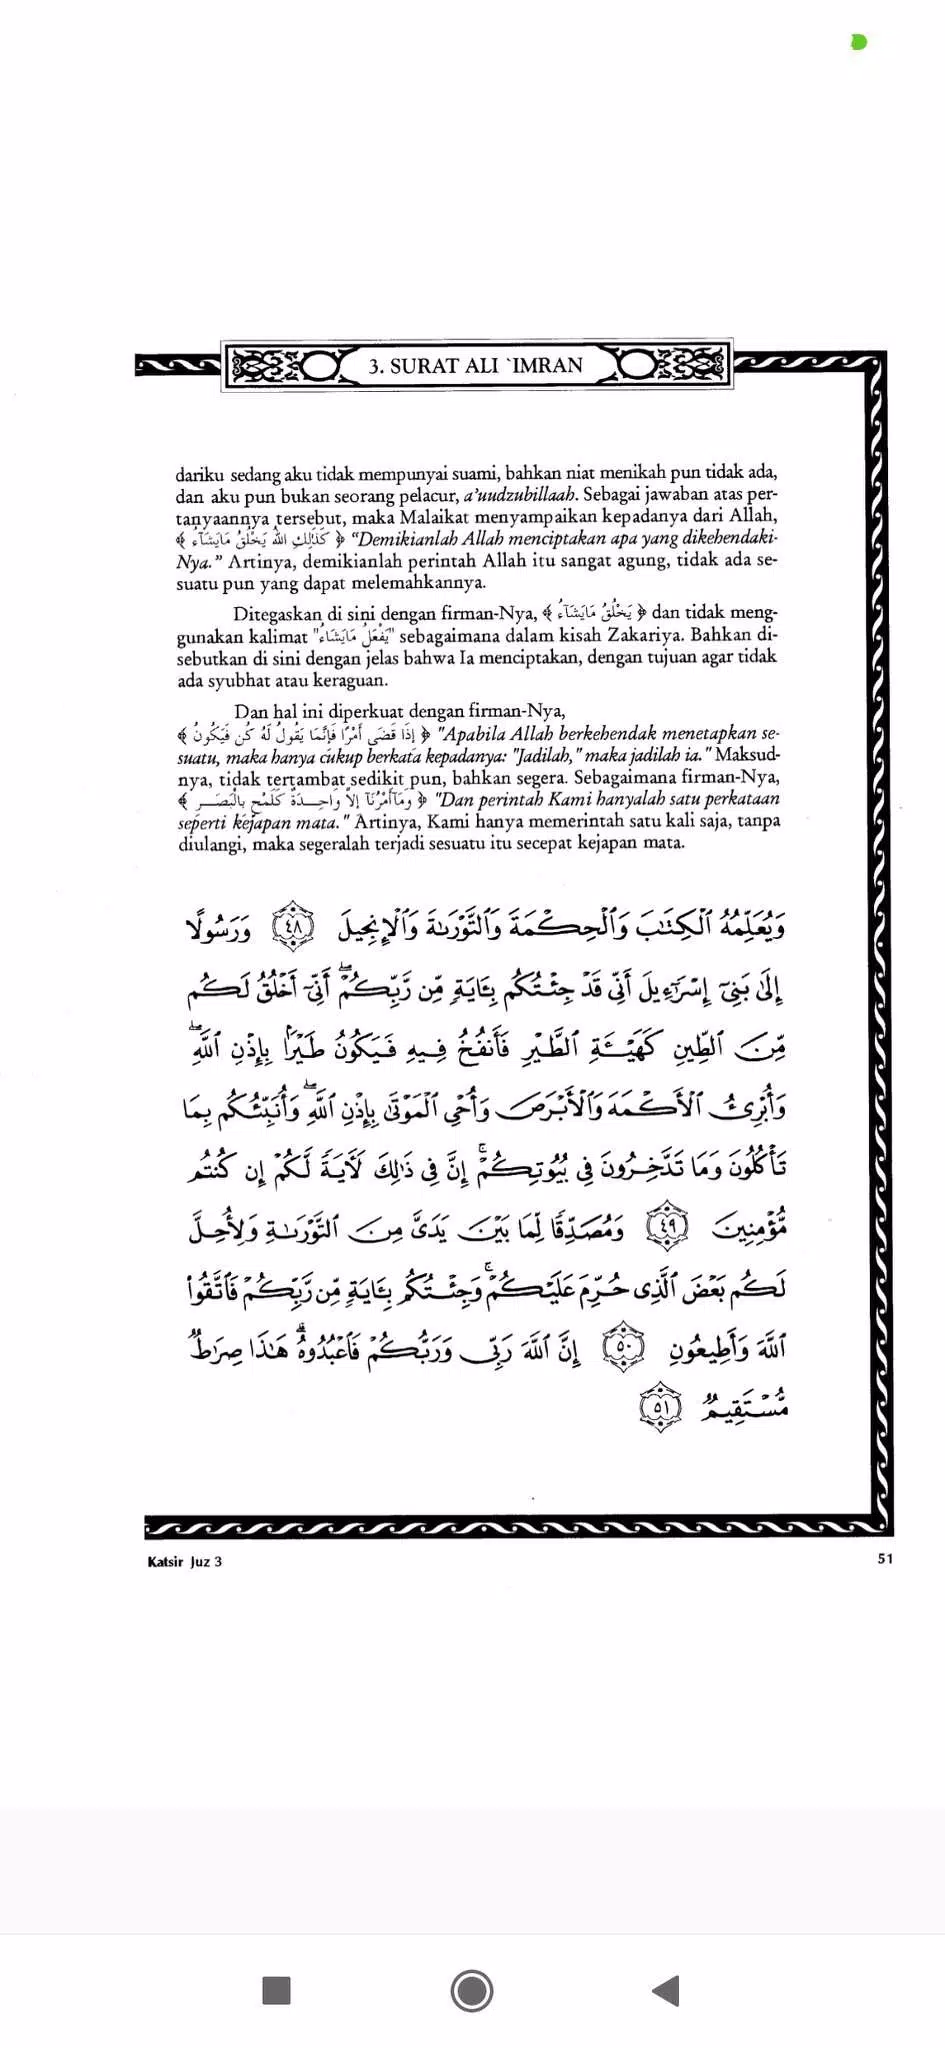 3. SURAT ALI `IMRAN
dariku sedang aku tidak mempunyai suami, bahkan niat menikah pun tidak ada,
dan aku pun bukan seorang pelacur, a'uudzubillaah. Sebagai jawaban atas per-
tanyaannya tersebut, maka Malaikat menyampaikan kepadanya dari Allah,
﴿ كَذَٰلِكِ اللهُ يَخْلُقُ مَايَشَآءُ ﴾ "Demikianlah Allah menciptakan apa yang dikehendaki-
Nya." Artinya, demikianlah perintah Allah itu sangat agung, tidak ada se-
suatu pun yang dapat melemahkannya.
Ditegaskan di sini dengan firman-Nya, ﴿ يَخْلُقُ مَايَشَآءُ ﴾ dan tidak meng-
gunakan kalimat "يَفْعَلُ مَايَشَاءُ" sebagaimana dalam kisah Zakariya. Bahkan di-
sebutkan di sini dengan jelas bahwa Ia menciptakan, dengan tujuan agar tidak
ada syubhat atau keraguan.
Dan hal ini diperkuat dengan firman-Nya,
﴿ إِذَا قَضَى أَمْرًا فَإِنَّمَا يَقُولُ لَهُ كُن فَيَكُونُ ﴾ "Apabila Allah berkehendak menetapkan se-
suatu, maka hanya cukup berkata kepadanya: "Jadilah," maka jadilah ia." Maksud-
nya, tidak tertambat sedikit pun, bahkan segera. Sebagaimana firman-Nya,
﴿ وَمَآأَمْرُنَآ إِلاَّ وَاحِدَةٌ كَلَمْحٍ بِالْبَصَرِ ﴾ "Dan perintah Kami hanyalah satu perkataan
seperti kejapan mata." Artinya, Kami hanya memerintah satu kali saja, tanpa
diulangi, maka segeralah terjadi sesuatu itu secepat kejapan mata.
وَيُعَلِّمُهُ ٱلْكِتَٰبَ وَٱلْحِكْمَةَ وَٱلتَّوْرَىٰةَ وَٱلْإِنجِيلَ ٤٨ وَرَسُولًا
إِلَىٰ بَنِىٓ إِسْرَٰٓءِيلَ أَنِّى قَدْ جِئْتُكُم بِـَٔايَةٍ مِّن رَّبِّكُمْ ۖ أَنِّىٓ أَخْلُقُ لَكُم
مِّنَ ٱلطِّينِ كَهَيْـَٔةِ ٱلطَّيْرِ فَأَنفُخُ فِيهِ فَيَكُونُ طَيْرًۢا بِإِذْنِ ٱللَّهِ ۖ
وَأُبْرِئُ ٱلْأَكْمَهَ وَٱلْأَبْرَصَ وَأُحْىِ ٱلْمَوْتَىٰ بِإِذْنِ ٱللَّهِ ۖ وَأُنَبِّئُكُم بِمَا
تَأْكُلُونَ وَمَا تَدَّخِرُونَ فِى بُيُوتِكُمْ ۚ إِنَّ فِى ذَٰلِكَ لَـَٔايَةً لَّكُمْ إِن كُنتُم
مُّؤْمِنِينَ ٤٩ وَمُصَدِّقًا لِّمَا بَيْنَ يَدَىَّ مِنَ ٱلتَّوْرَىٰةِ وَلِأُحِلَّ
لَكُم بَعْضَ ٱلَّذِى حُرِّمَ عَلَيْكُمْ ۚ وَجِئْتُكُم بِـَٔايَةٍ مِّن رَّبِّكُمْ فَٱتَّقُوا۟
ٱللَّهَ وَأَطِيعُونِ ٥٠ إِنَّ ٱللَّهَ رَبِّى وَرَبُّكُمْ فَٱعْبُدُوهُ ۗ هَٰذَا صِرَٰطٌ
مُّسْتَقِيمٌ ٥١
Katsir Juz 3
51